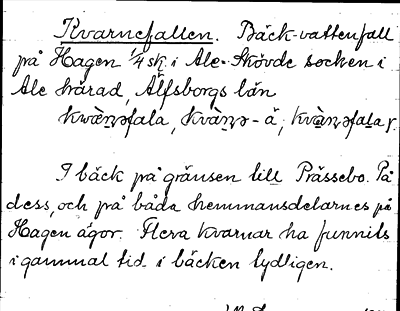 Kvarnefallen. Bäck-vattenfall
på Hagen 1/4 sk. i Ale-Skövde socken i
Ale härad, Älfsborgs län
I bäck på gränsen till Prässebo. På
dess, och på båda hemmansdelarnes på
Hagen ägor. Flera kvarnar ha funnits
i gammal tid i bäcken tydligen.